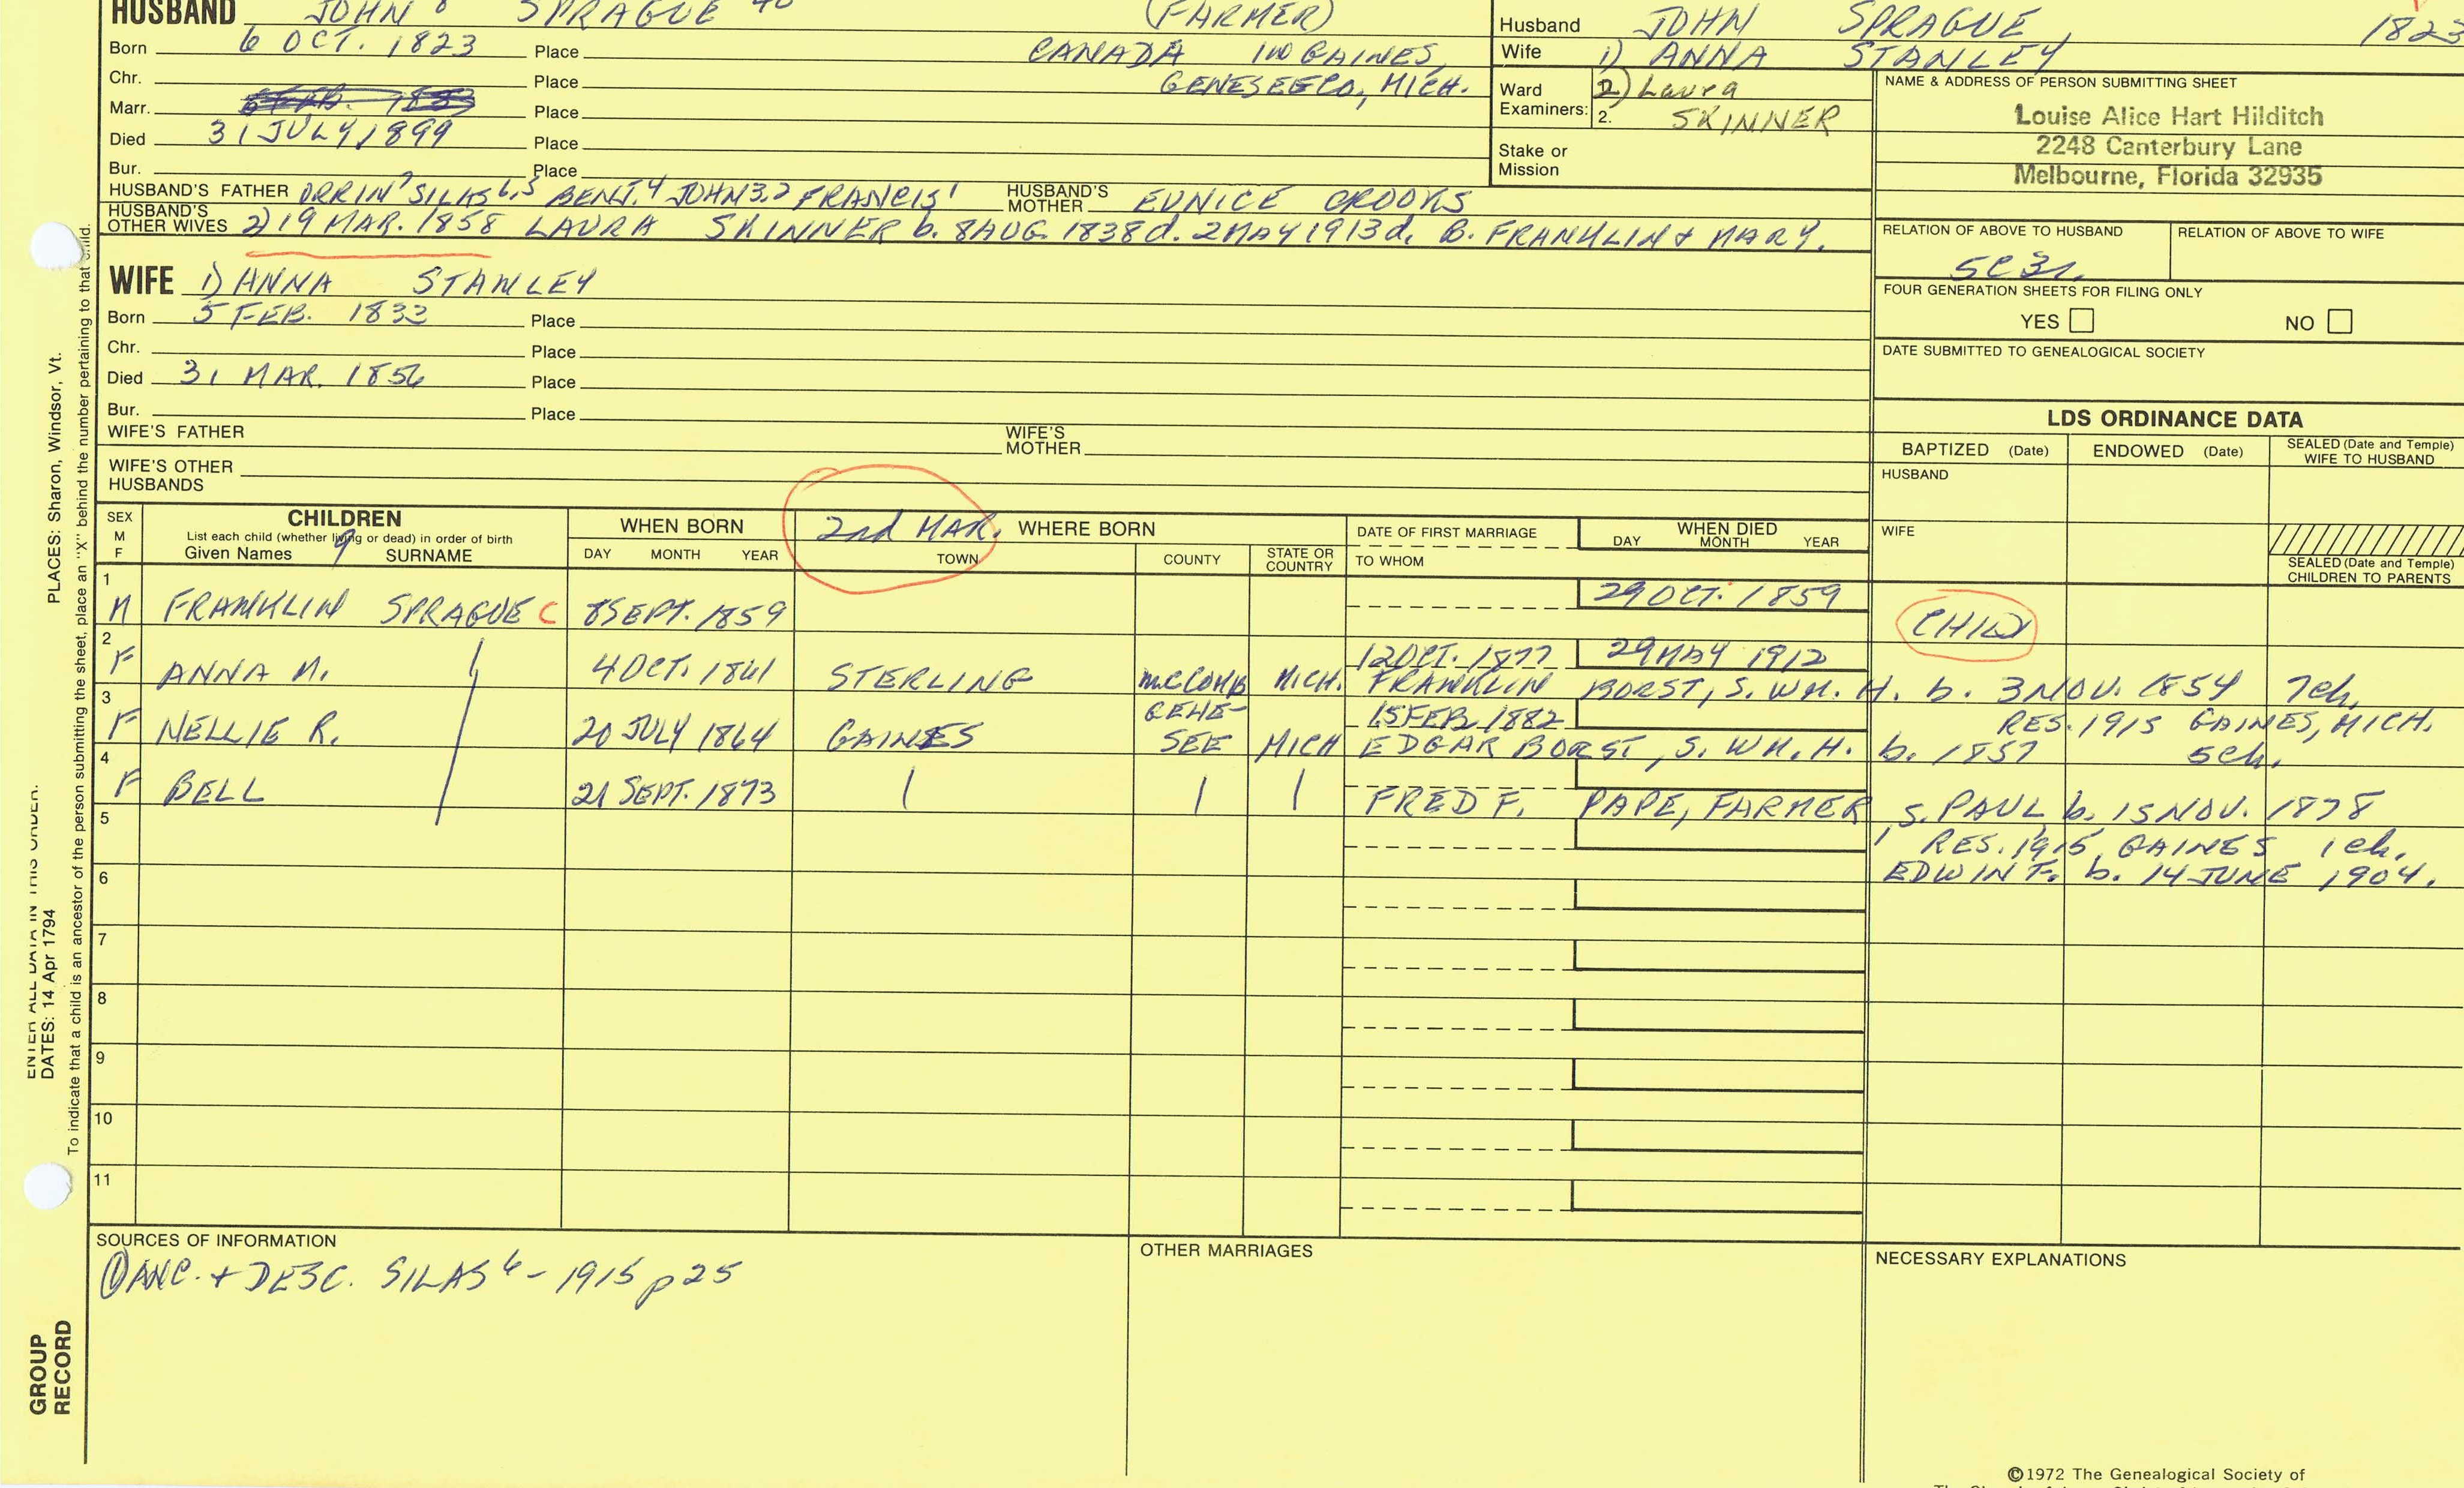 HUSBAND JOHN 8 SPRAGUE (FARMER)
Born 6 OCT. 1823 Place CANADA IN GAINES,
Chr. Place GENESEE CO, MICH.
Marr. Place
Died 31 JULY, 1899 Place
Bur. Place
HUSBAND'S FATHER ORRIN 7 SILAS 6,5 BENJ. 4 JOHN 3,2 FRANCIS 1 HUSBAND'S MOTHER EUNICE CROOKS
HUSBAND'S OTHER WIVES 2) 19 MAR. 1858 LAURA SKINNER b. 8 AUG 1838 d. 2 MAY 1913 d. B. FRANKLIN + MARY.
WIFE 1) ANNA STANLEY
Born 5 FEB. 1833 Place
Chr. Place
Died 31 MAR. 1856 Place
Bur. Place
WIFE'S FATHER WIFE'S MOTHER
WIFE'S OTHER HUSBANDS
Husband JOHN SPRAGUE, 1823
Wife 1) ANNA STANLEY
Ward Examiners: 2) Laura
2. SKINNER
Stake or Mission
NAME & ADDRESS OF PERSON SUBMITTING SHEET
Louise Alice Hart Hilditch
2248 Canterbury Lane
Melbourne, Florida 32935
RELATION OF ABOVE TO HUSBAND RELATION OF ABOVE TO WIFE
5C3r
FOUR GENERATION SHEETS FOR FILING ONLY
YES NO
DATE SUBMITTED TO GENEALOGICAL SOCIETY
LDS ORDINANCE DATA
BAPTIZED (Date) ENDOWED (Date) SEALED (Date and Temple) WIFE TO HUSBAND
HUSBAND
WIFE
SEALED (Date and Temple) CHILDREN TO PARENTS
SEX M F
CHILDREN
List each child (whether living or dead) in order of birth
Given Names 9 SURNAME
WHEN BORN
DAY MONTH YEAR
2nd MAR. WHERE BORN
TOWN COUNTY STATE OR COUNTRY
DATE OF FIRST MARRIAGE
TO WHOM
WHEN DIED
DAY MONTH YEAR
1 M FRANKLIN SPRAGUE C 8 SEPT. 1859 29 OCT. 1859 CHILD
2 F ANNA M. 4 OCT. 1861 STERLING McCOMB MICH. 12 OCT. 1877 29 MAY 1912
FRANKLIN BORST, S. WM. H. b. 3 NOV. 1854 7ch.
3 F NELLIE R. 20 JULY 1864 GAINES GENE-SEE MICH 15 FEB 1882 RES. 1915 GAINES, MICH.
EDGAR BORST, S. WM. H. b. 1857 5ch.
4 F BELL 21 SEPT. 1873 FRED F. PAPE, FARMER, S. PAUL b. 15 NOV. 1878
5 RES. 1915 GAINES 1 ch.
EDWIN F. b. 14 JUNE 1904.
6
7
8
9
10
11
SOURCES OF INFORMATION
① ANC. + DESC. SILAS 6 - 1915 p 25
OTHER MARRIAGES
NECESSARY EXPLANATIONS
©1972 The Genealogical Society of
PLACES: Sharon, Windsor, Vt.
To indicate that a child is an ancestor of the person submitting the sheet, place an "X" behind the number pertaining to that child.
ENTER ALL DATA IN THIS ORDER:
DATES: 14 Apr 1794
GROUP RECORD